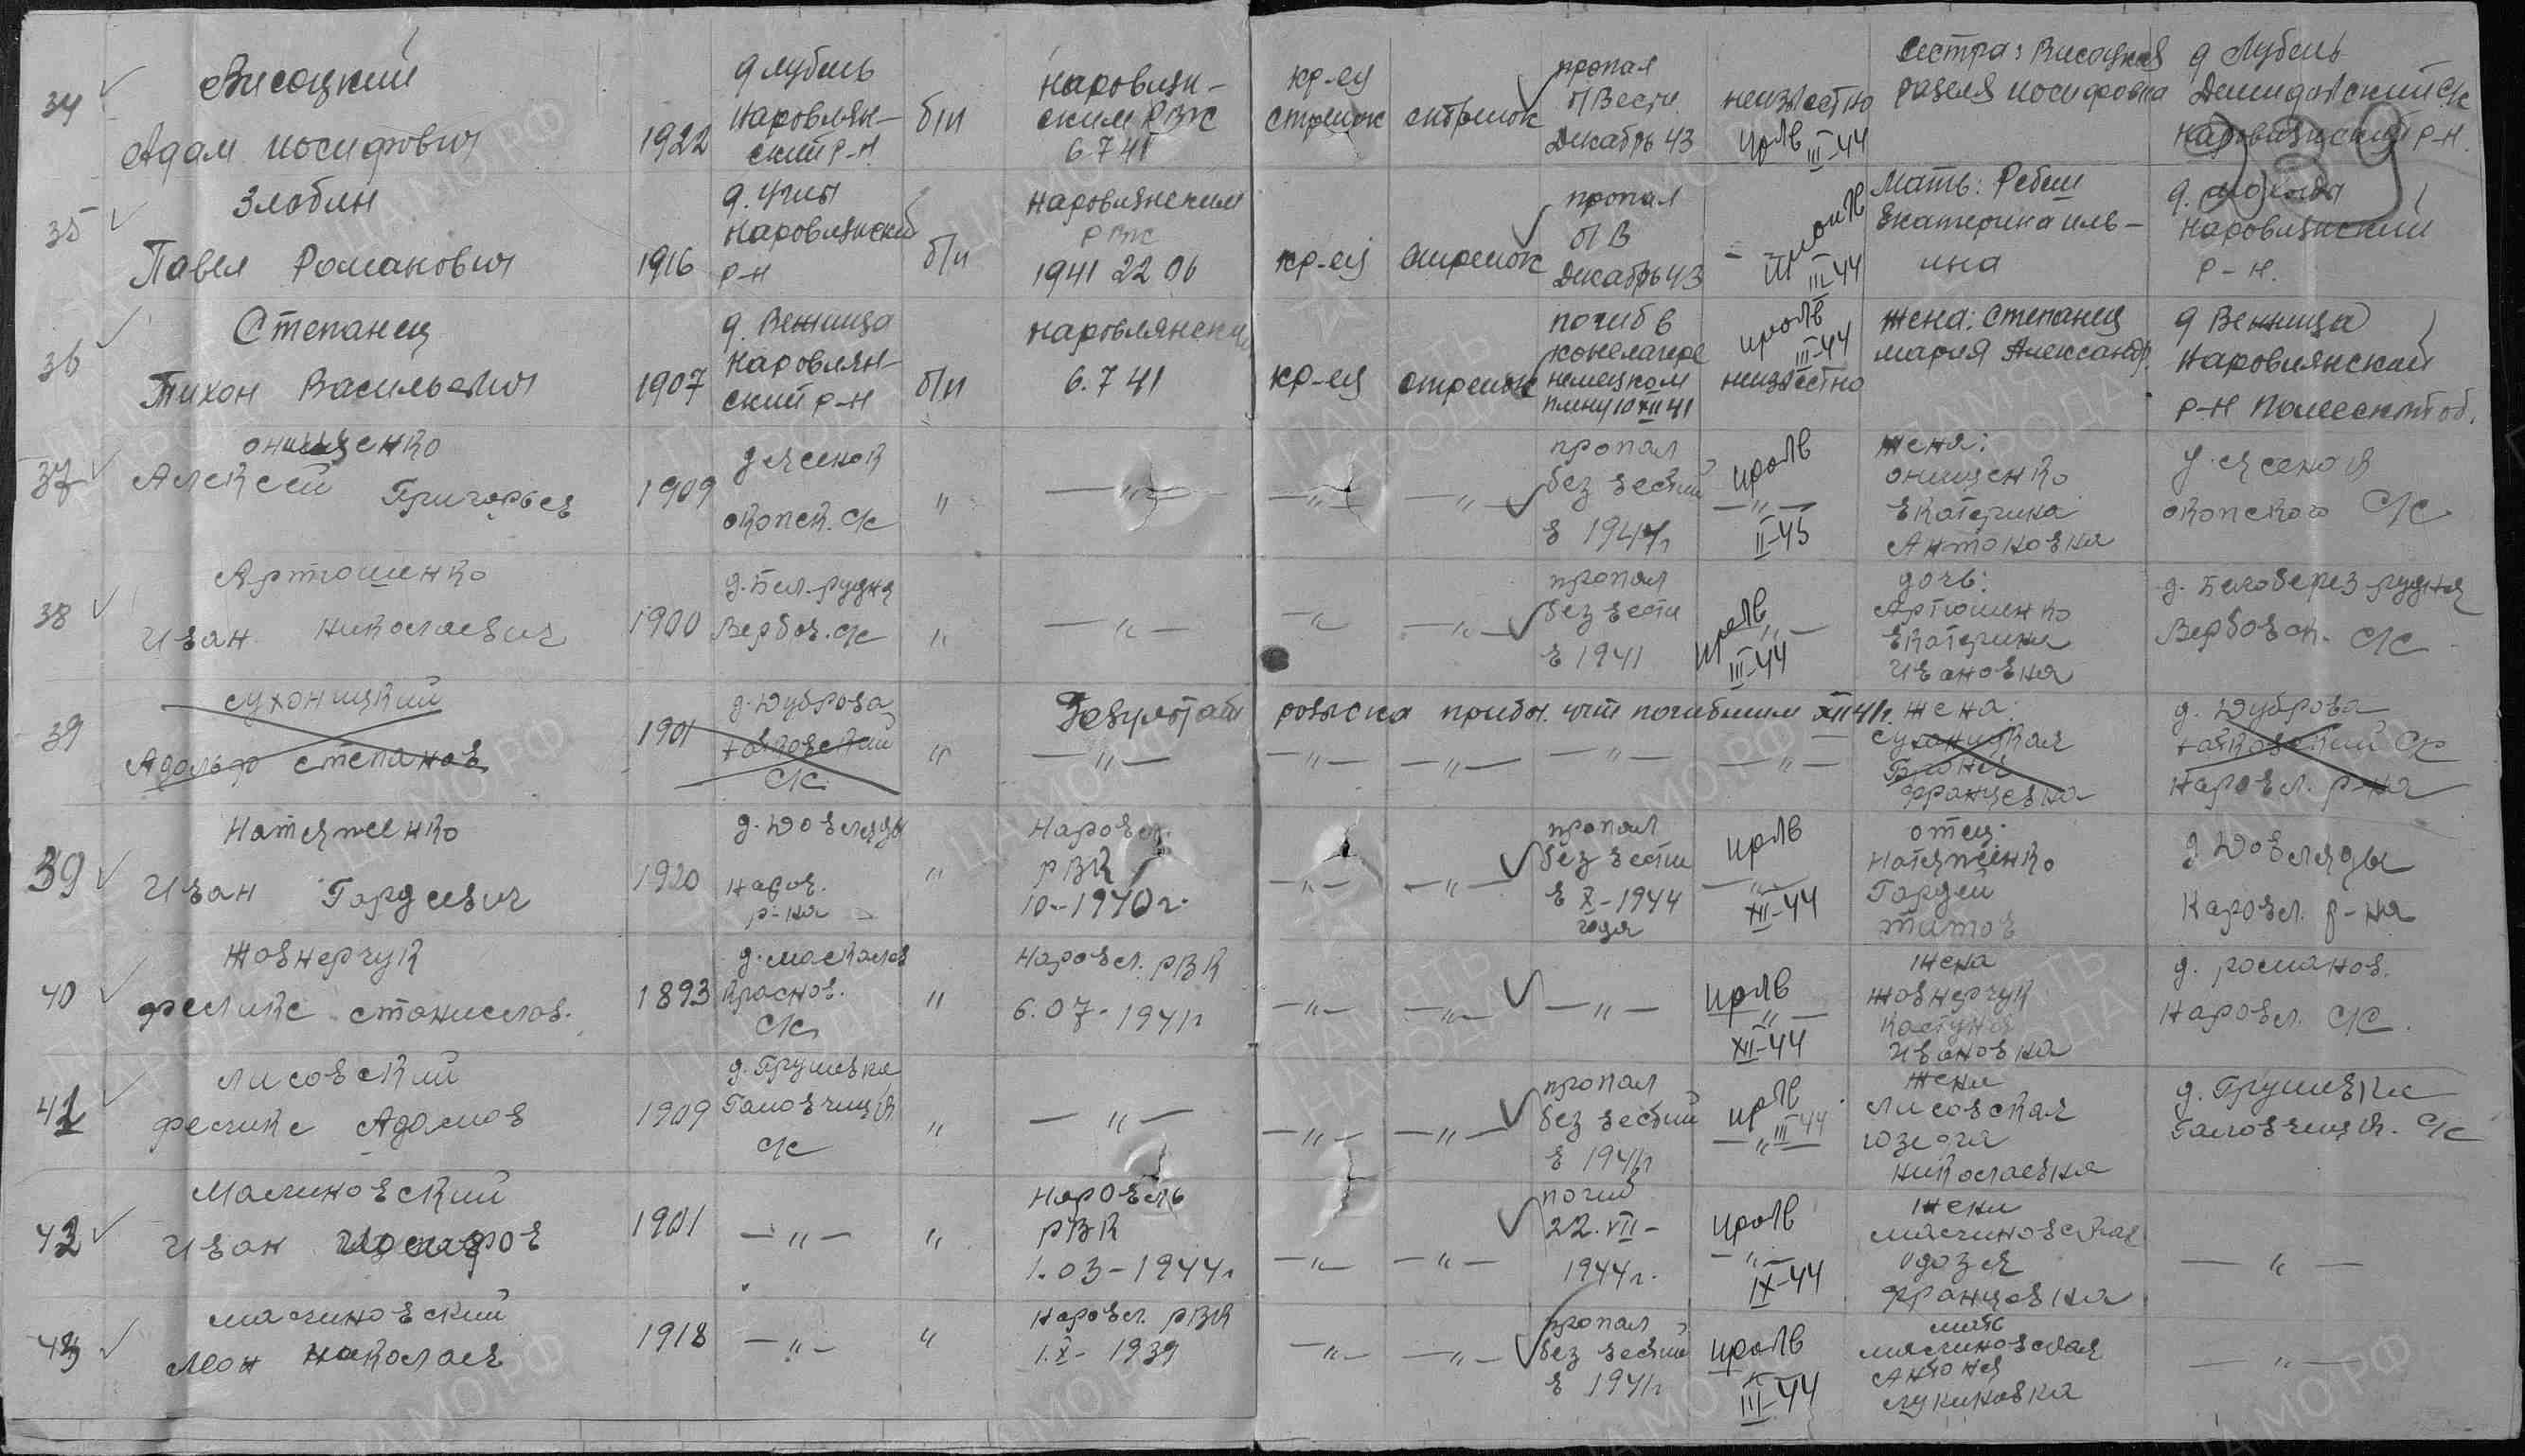 34
Висоцкий
Адам Иосифович
1922
д Лубень
Наровлян-
ский р-н
б/п
Наровлян-
ским РВК
6.7 41
кр-ец
стрелок
стрелок
пропал
б/вести
Декабрь 43
неизвестно
III-44
сестра: Висоцкая
Иосифовна
д Лубень
Демидовский с/с
Наровлянский р-н.
35
Злобин
Павел Романович
1916
д. Углы
Наровлянский
р-н
б/п
Наровлянским
РВК
1941 22 06
кр-ец
стрелок
пропал
б/в
Декабрь 43
III-44
Мать:
Екатерина Иль-
ина
д.
Наровлянский
р-н.
36
Степанец
Тихон Васильевич
1907
д.
Наровлян-
ский р-н
б/п
Наровлянским
6.7 41
кр-ец
стрелок
погиб в
концлагере
немецком
плену 10 XII 41
III-44
неизвестно
Жена: Степанец
Мария Александр.
д
Наровлянский
р-н Полесской об.
37
Онищенко
Алексей Григорьев
1909
д Ясенок
Окопск. с/с
"
— " —
— " —
— " —
пропал
без вести
в 1944г
— " —
II-45
жена:
Онищенко
Екатерина
Антоновна
д. Ясенок
Окопского с/с
38
Артюшенко
Иван Николаевич
1900
д. Бел. рудня
Вербов. с/с
"
— " —
— " —
— " —
пропал
без вести
в 1941
— " —
III-44
дочь:
Артюшенко
Екатерина
Ивановна
д. Белоберез рудня
Вербовск. с/с
39
Сухоницкий
Адольф Степанов
1901
д. Дуброва
с/с
"
— " —
Результат розыска прибыл. погибшим XII 41г.
— " —
— " —
— " —
— " —
жена:
Сухоницкая
Броня
Францевна
д. Дуброва
с/с
Наровл. р-на
39
Нотяженко
Иван Гордеевич
1920
д. Довляды
Наров.
р-на
"
Наровл.
РВК
10.-1940г.
— " —
— " —
пропал
без вести
в X-1944
года
— " —
XII-44
отец:
Нотяженко
Гордей
Титов
д Довляды
Наровл. р-на
40
Жовнерчук
Феликс Станислов.
1893
д. Москалев
Краснов.
с/с
"
Наровл. РВК
6.07-1941г
— " —
— " —
— " —
— " —
XII-44
жена
Жовнерчук
Ивановна
д. Романов.
Наровл. с/с.
41
Лисовский
Феликс Адамов
1909
д. Грушевка
Головчицк
с/с
"
— " —
— " —
— " —
пропал
без вести
в 1941г
III-44
— " —
жена
Лисовская
Юзефа
Николаевна
д. Грушевка
Головчицк. с/с
42
Малиновский
Иван Иосифов
1901
— " —
"
Наровль
РВК
1.03-1944г
— " —
— " —
погиб
22.VII-
1944г.
— " —
IX-44
жена
Малиновская
Францевна
— " —
43
Малиновский
Леон Николаев
1918
— " —
"
Наровл. РВК
1.X- 1939
— " —
— " —
пропал
без вести
в 1941г
III-44
мать
Малиновская
Антоня
Лукиновна
— " —